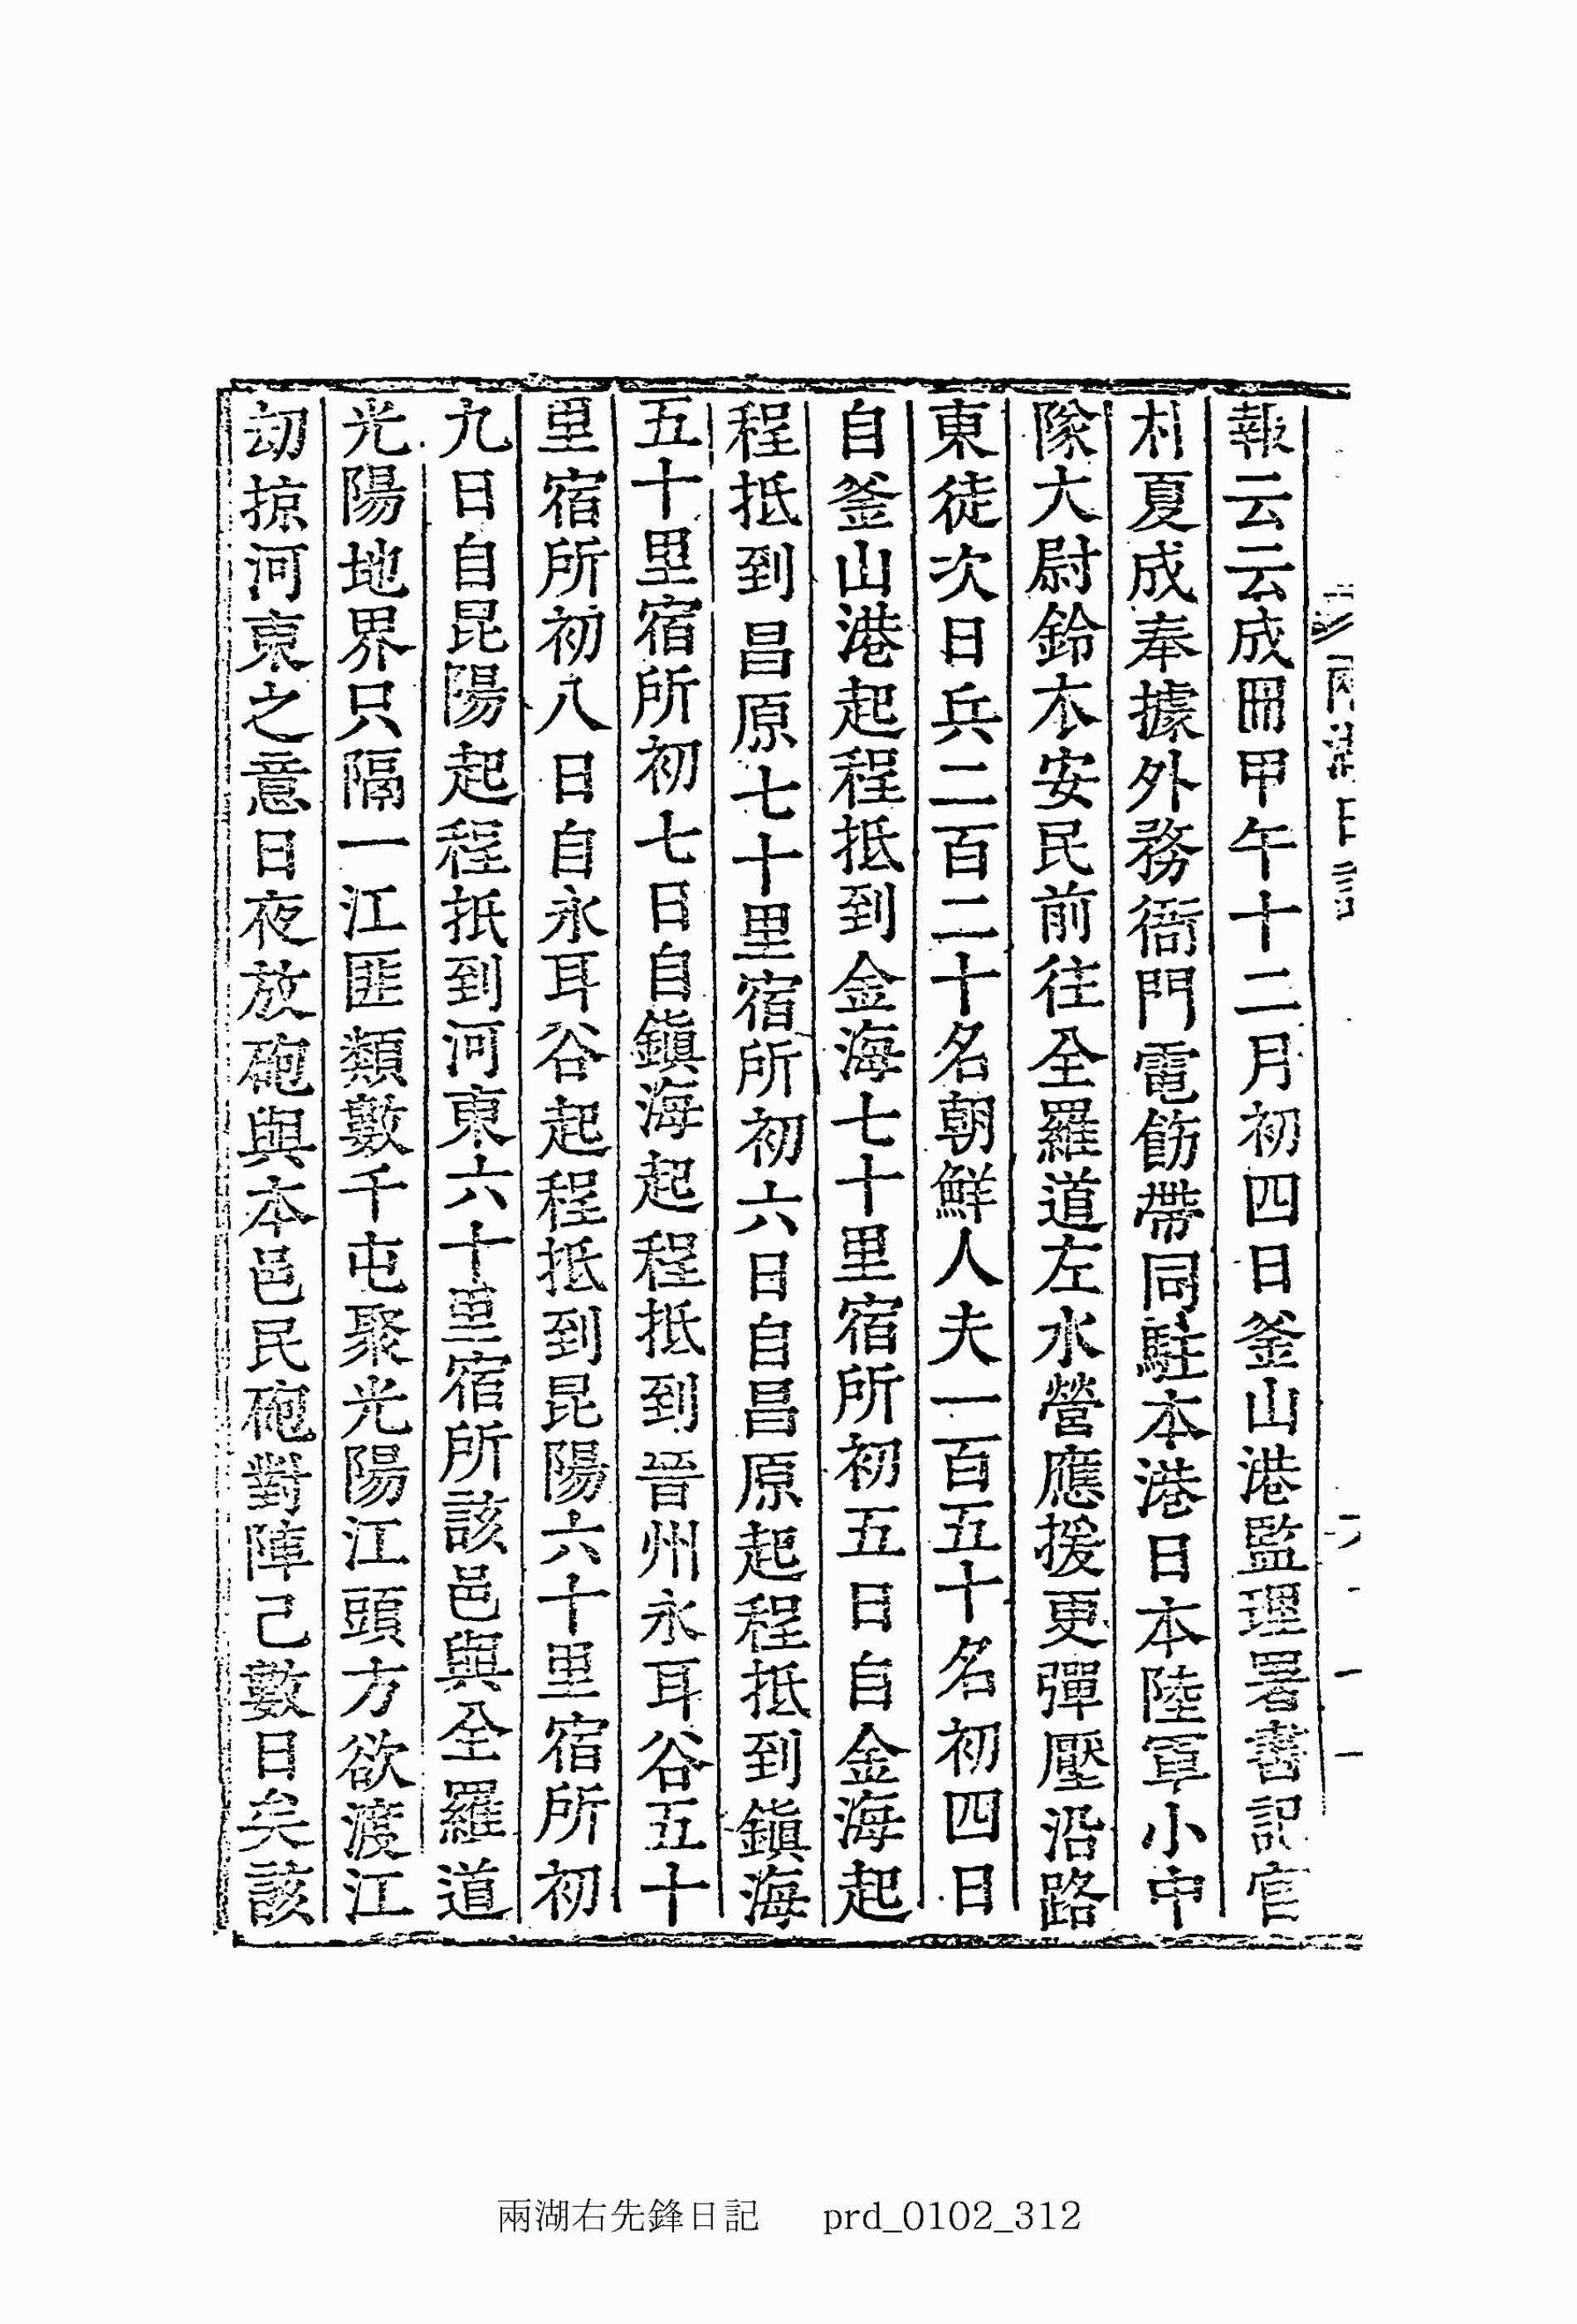 報云云成冊甲午十二月初四日釜山港監理署書記官
朴夏成奉據外務衙門電飭帶同駐本港日本陸軍小中
隊大尉鈴木安民前往全羅道左水營應援更彈壓沿路
東徒次日兵二百二十名朝鮮人夫一百五十名初四日
自釜山港起程抵到金海七十里宿所初五日自金海起
程抵到昌原七十里宿所初六日自昌原起程抵到鎭海
五十里宿所初七日自鎭海起程抵到晉州永耳谷五十
里宿所初八日自永耳谷起程抵到昆陽六十里宿所初
九日自昆陽起程抵到河東六十里宿所該邑與全羅道
光陽地界只隔一江匪類數千屯聚光陽江頭方欲渡江
刼掠河東之意日夜放砲與本邑民砲對陣己數日矣該
兩湖右先鋒日記 prd_0102_312